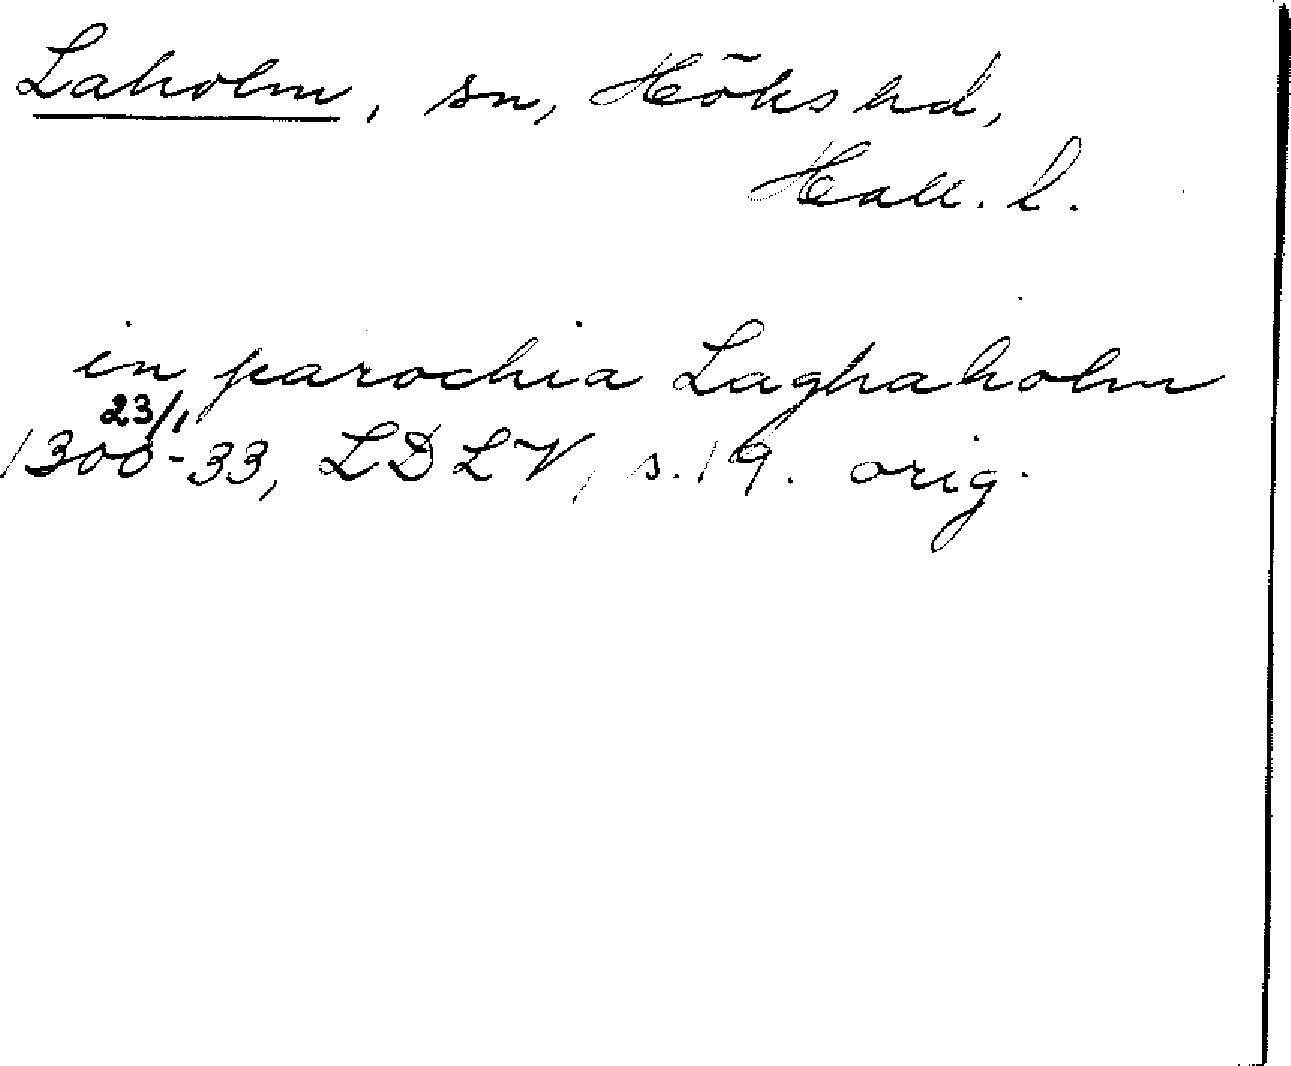 Laholm, sn, Höks hd,
Hall. l.
in parochia Laghaholm
23/1
1300-33, LDLV, s. 19. orig.